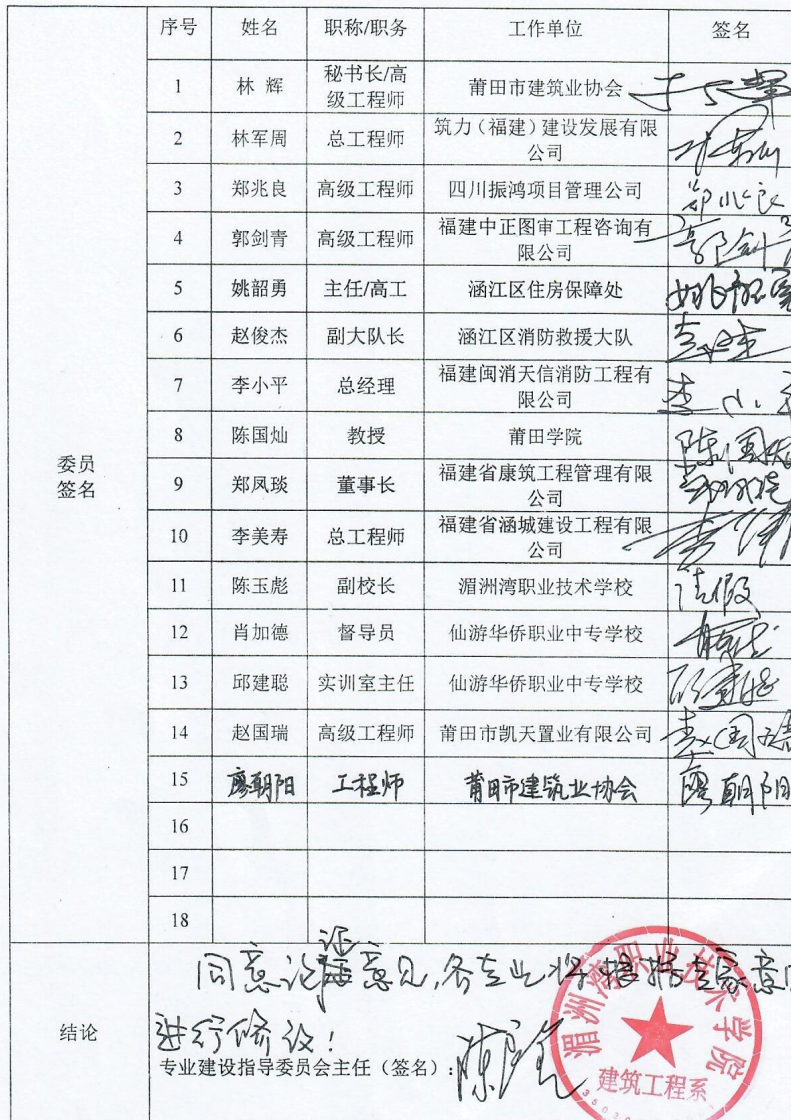 序号 姓名 职称/职务 工作单位 签名
1 林 辉 秘书长/高级工程师 莆田市建筑业协会
2 林军周 总工程师 筑力（福建）建设发展有限公司
3 郑兆良 高级工程师 四川振鸿项目管理公司 郑兆良
4 郭剑青 高级工程师 福建中正图审工程咨询有限公司 郭剑青
5 姚韶勇 主任/高工 涵江区住房保障处 姚韶勇
6 赵俊杰 副大队长 涵江区消防救援大队
7 李小平 总经理 福建闽消天信消防工程有限公司 李小平
8 陈国灿 教授 莆田学院 陈国灿
9 郑凤琰 董事长 福建省康筑工程管理有限公司
10 李美寿 总工程师 福建省涵城建设工程有限公司
11 陈玉彪 副校长 湄洲湾职业技术学校 请假
12 肖加德 督导员 仙游华侨职业中专学校
13 邱建聪 实训室主任 仙游华侨职业中专学校
14 赵国瑞 高级工程师 莆田市凯天置业有限公司 赵国瑞
15 廖朝阳 工程师 莆田市建筑业协会 廖朝阳
16
17
18
委员
签名
结论
同意论证意见，各专业将根据专家意
进行修改！
专业建设指导委员会主任（签名）：
湄洲湾职业技术学院
建筑工程系